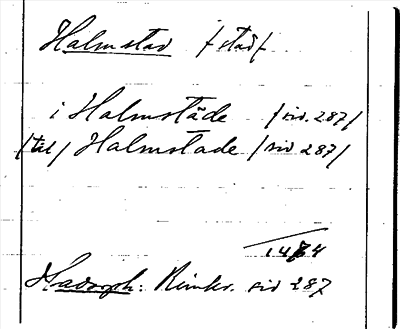 Halmstad /stad/
i Halmstäde /sid. 287/
/til/ Halmstade /sid 287/
Hadorph: Rimkr. sid 287